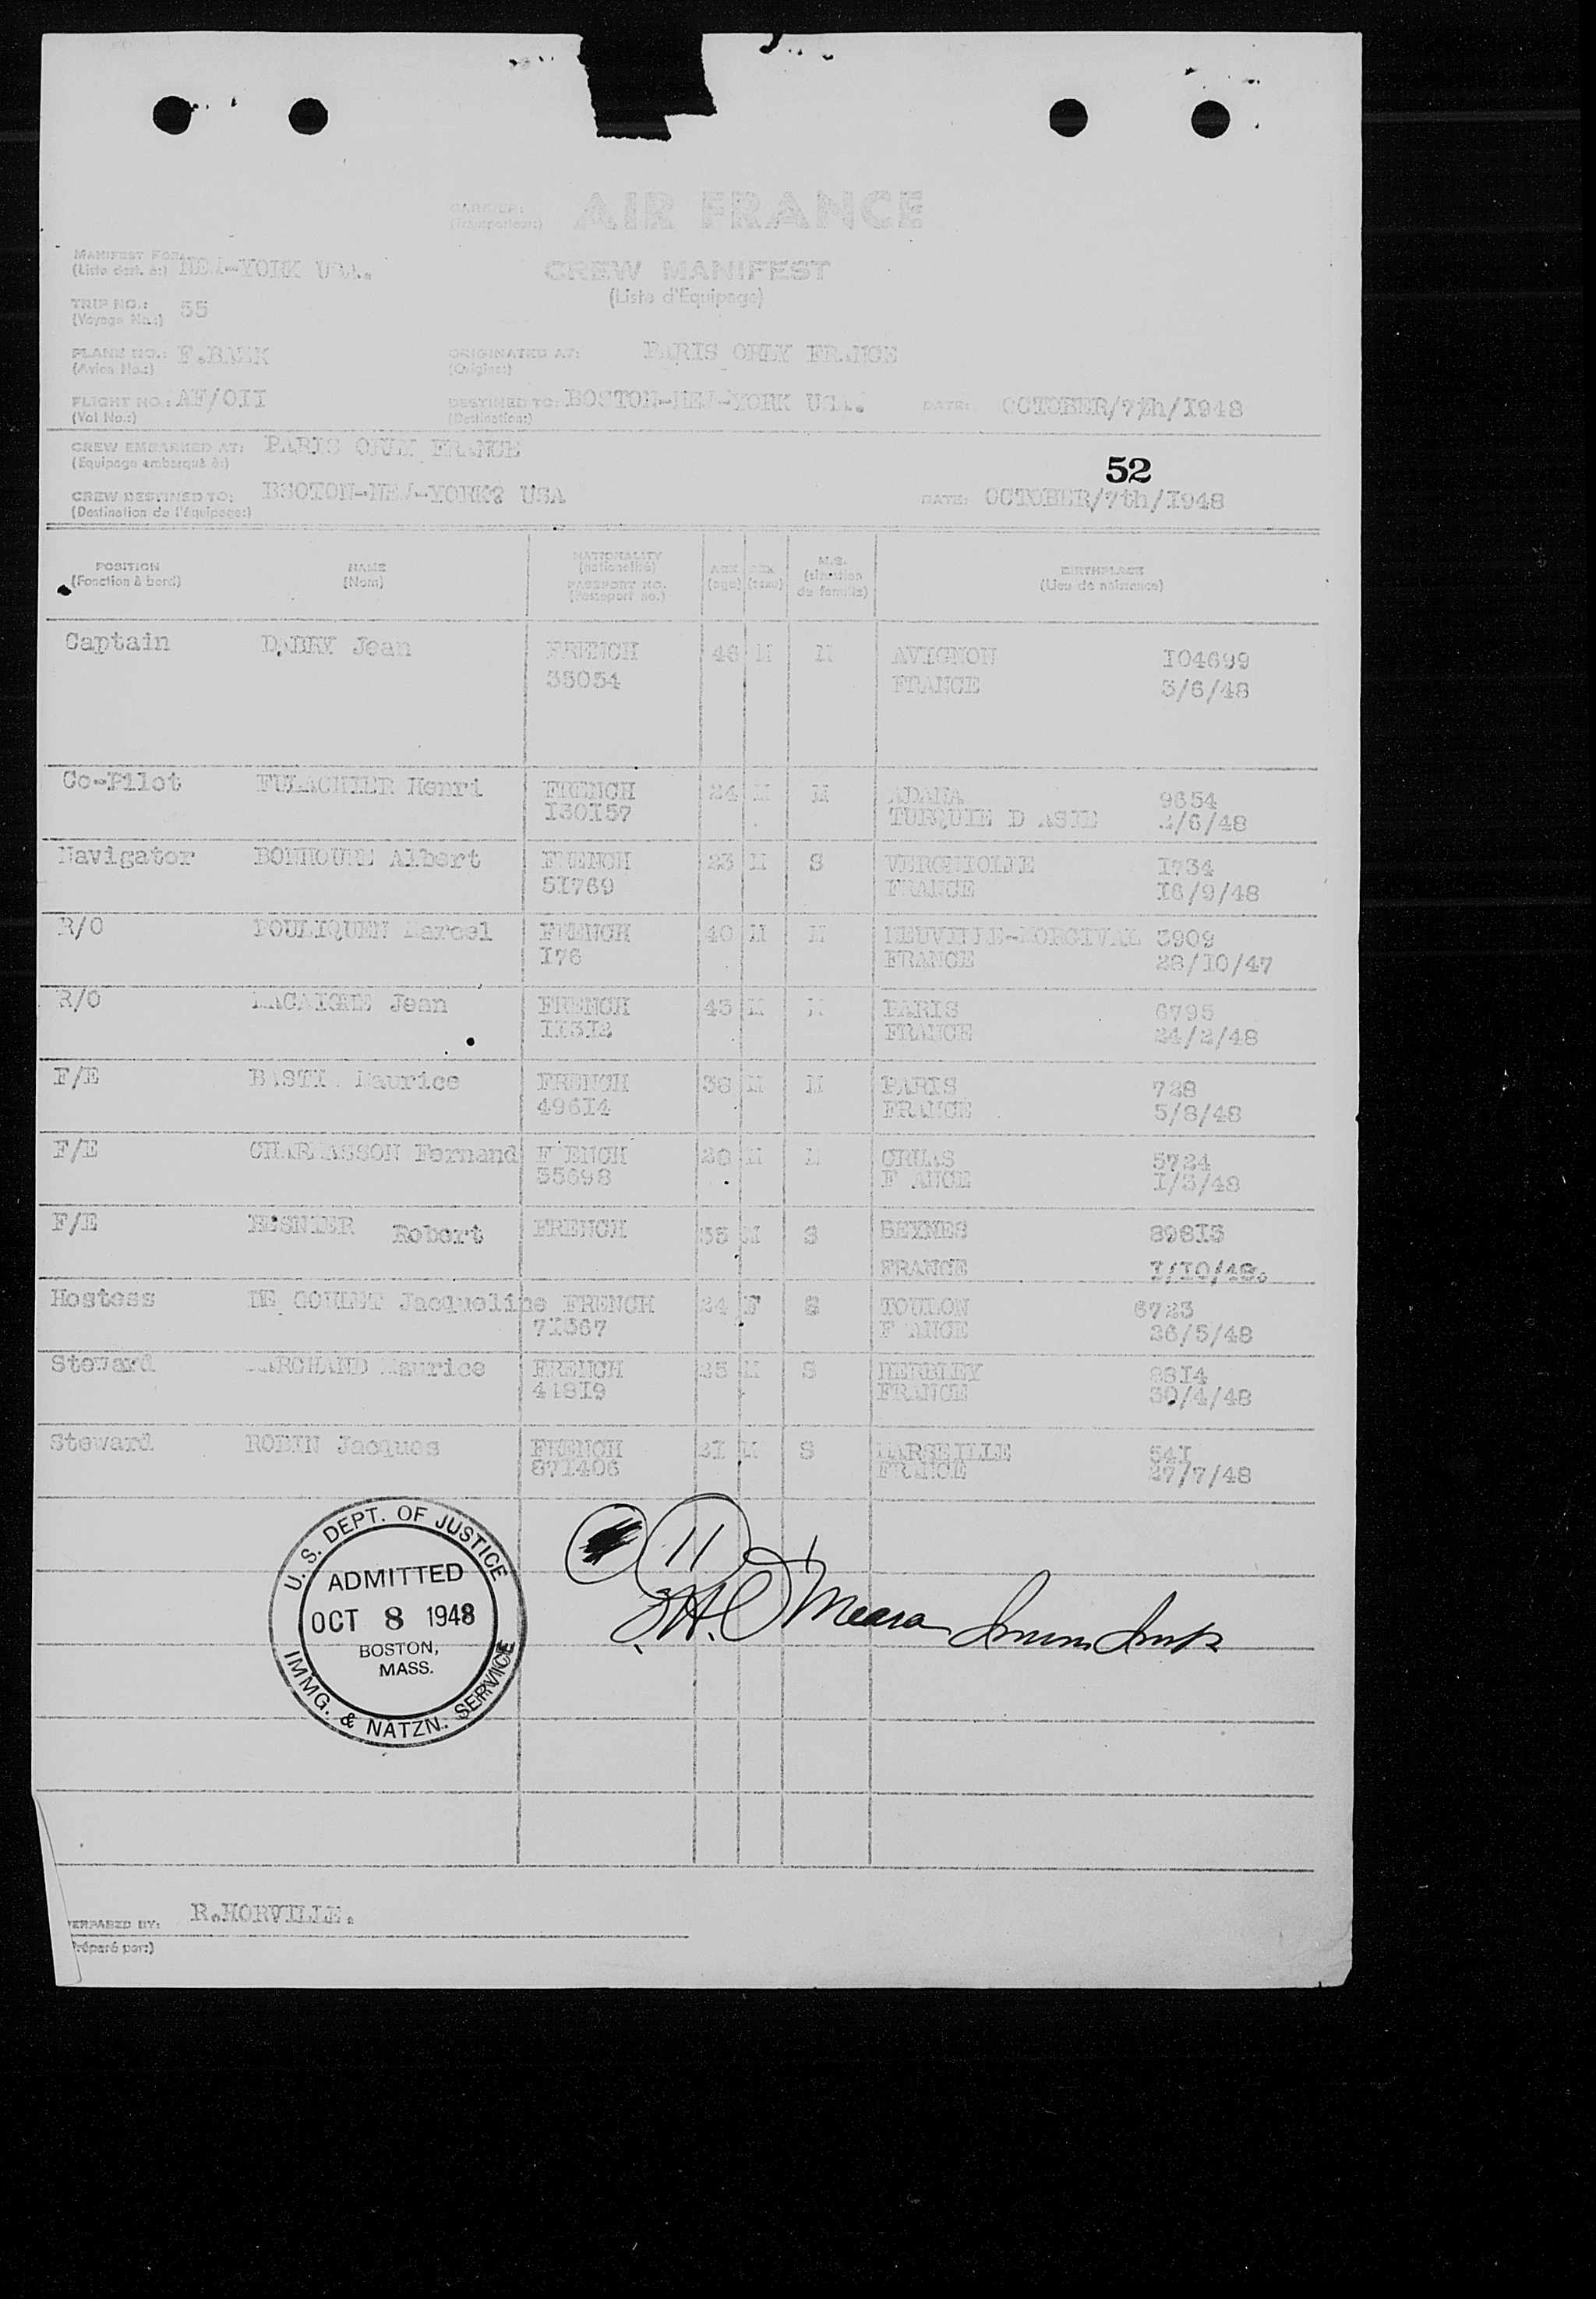 CARRIER: AIR FRANCE
(Transporteur:)
MANIFEST FOR: NEW-YORK USA.
(Liste dest. à:)
CREW MANIFEST
(Liste d'Equipage)
TRIP NO.: 55
(Voyage No.:)
PLANE NO.: F.BAEK ORIGINATED AT: PARIS ORLY FRANCE
(Avion No.:) (Origine:)
FLIGHT NO.: AF/OII DESTINED TO: BOSTON-NEW-YORK USA. DATE: OCTOBER/7th/I948
(Vol No.:) (Destination:)
CREW EMBARKED AT: PARIS ORLY FRANCE
(Equipage embarqué à:)
52
CREW DESTINED TO: BSOTON-NEW-YORK? USA DATE: OCTOBER/7th/I948
(Destination de l'équipage:)
POSITION NAME NATIONALITY AGE SEX M.S. BIRTHPLACE
(Fonction à bord) (Nom) (nationalité) (age) (sexe) (situation (Lieu de naissance)
PASSPORT NO. de famille)
(Passeport no.)
Captain DABRY Jean FRENCH 46 M M AVIGNON IO4699
35054 FRANCE 3/6/48
Co-Pilot FULACHIER Henri FRENCH 24 M M ADANA 9654
I30I57 TURQUIE D ASIE /6/48
Navigator BONHOURE Albert FRENCH 23 M S I734
5I769 FRANCE I6/9/48
R/O POULIQUEN Marcel FRENCH 40 M M 3909
I76 FRANCE 28/IO/47
R/O LACAIGNE Jean FRENCH 43 M M PARIS 6795
II3I2 FRANCE 24/2/48
F/E Maurice FRENCH 36 M M PARIS 728
496I4 FRANCE 5/8/48
F/E CHARMASSON Fernand F ENCH 28 M M CRUAS 5724
35698 F ANCE I/3/48
F/E BESNIER Robert FRENCH 35 M S BEYNES 898I3
FRANCE I/IO/48.
Hostess DE GOULET Jacqueline FRENCH 24 F S TOULON 6723
7I367 F ANCE 26/5/48
Steward MARCHAND Maurice FRENCH 25 M S HERBLEY 88I4
4I8I9 FRANCE 30/4/48
Steward ROBIN Jacques FRENCH 2I M S MARSEILLE 54I
87I406 FRANCE 27/7/48
U. S. DEPT. OF JUSTICE
ADMITTED
OCT 8 1948
BOSTON,
MASS.
IMMG. & NATZN. SERVICE
11
O'Meara Immn Insp
PREPARED BY: R.MORVILLE.
(Préparé par:)